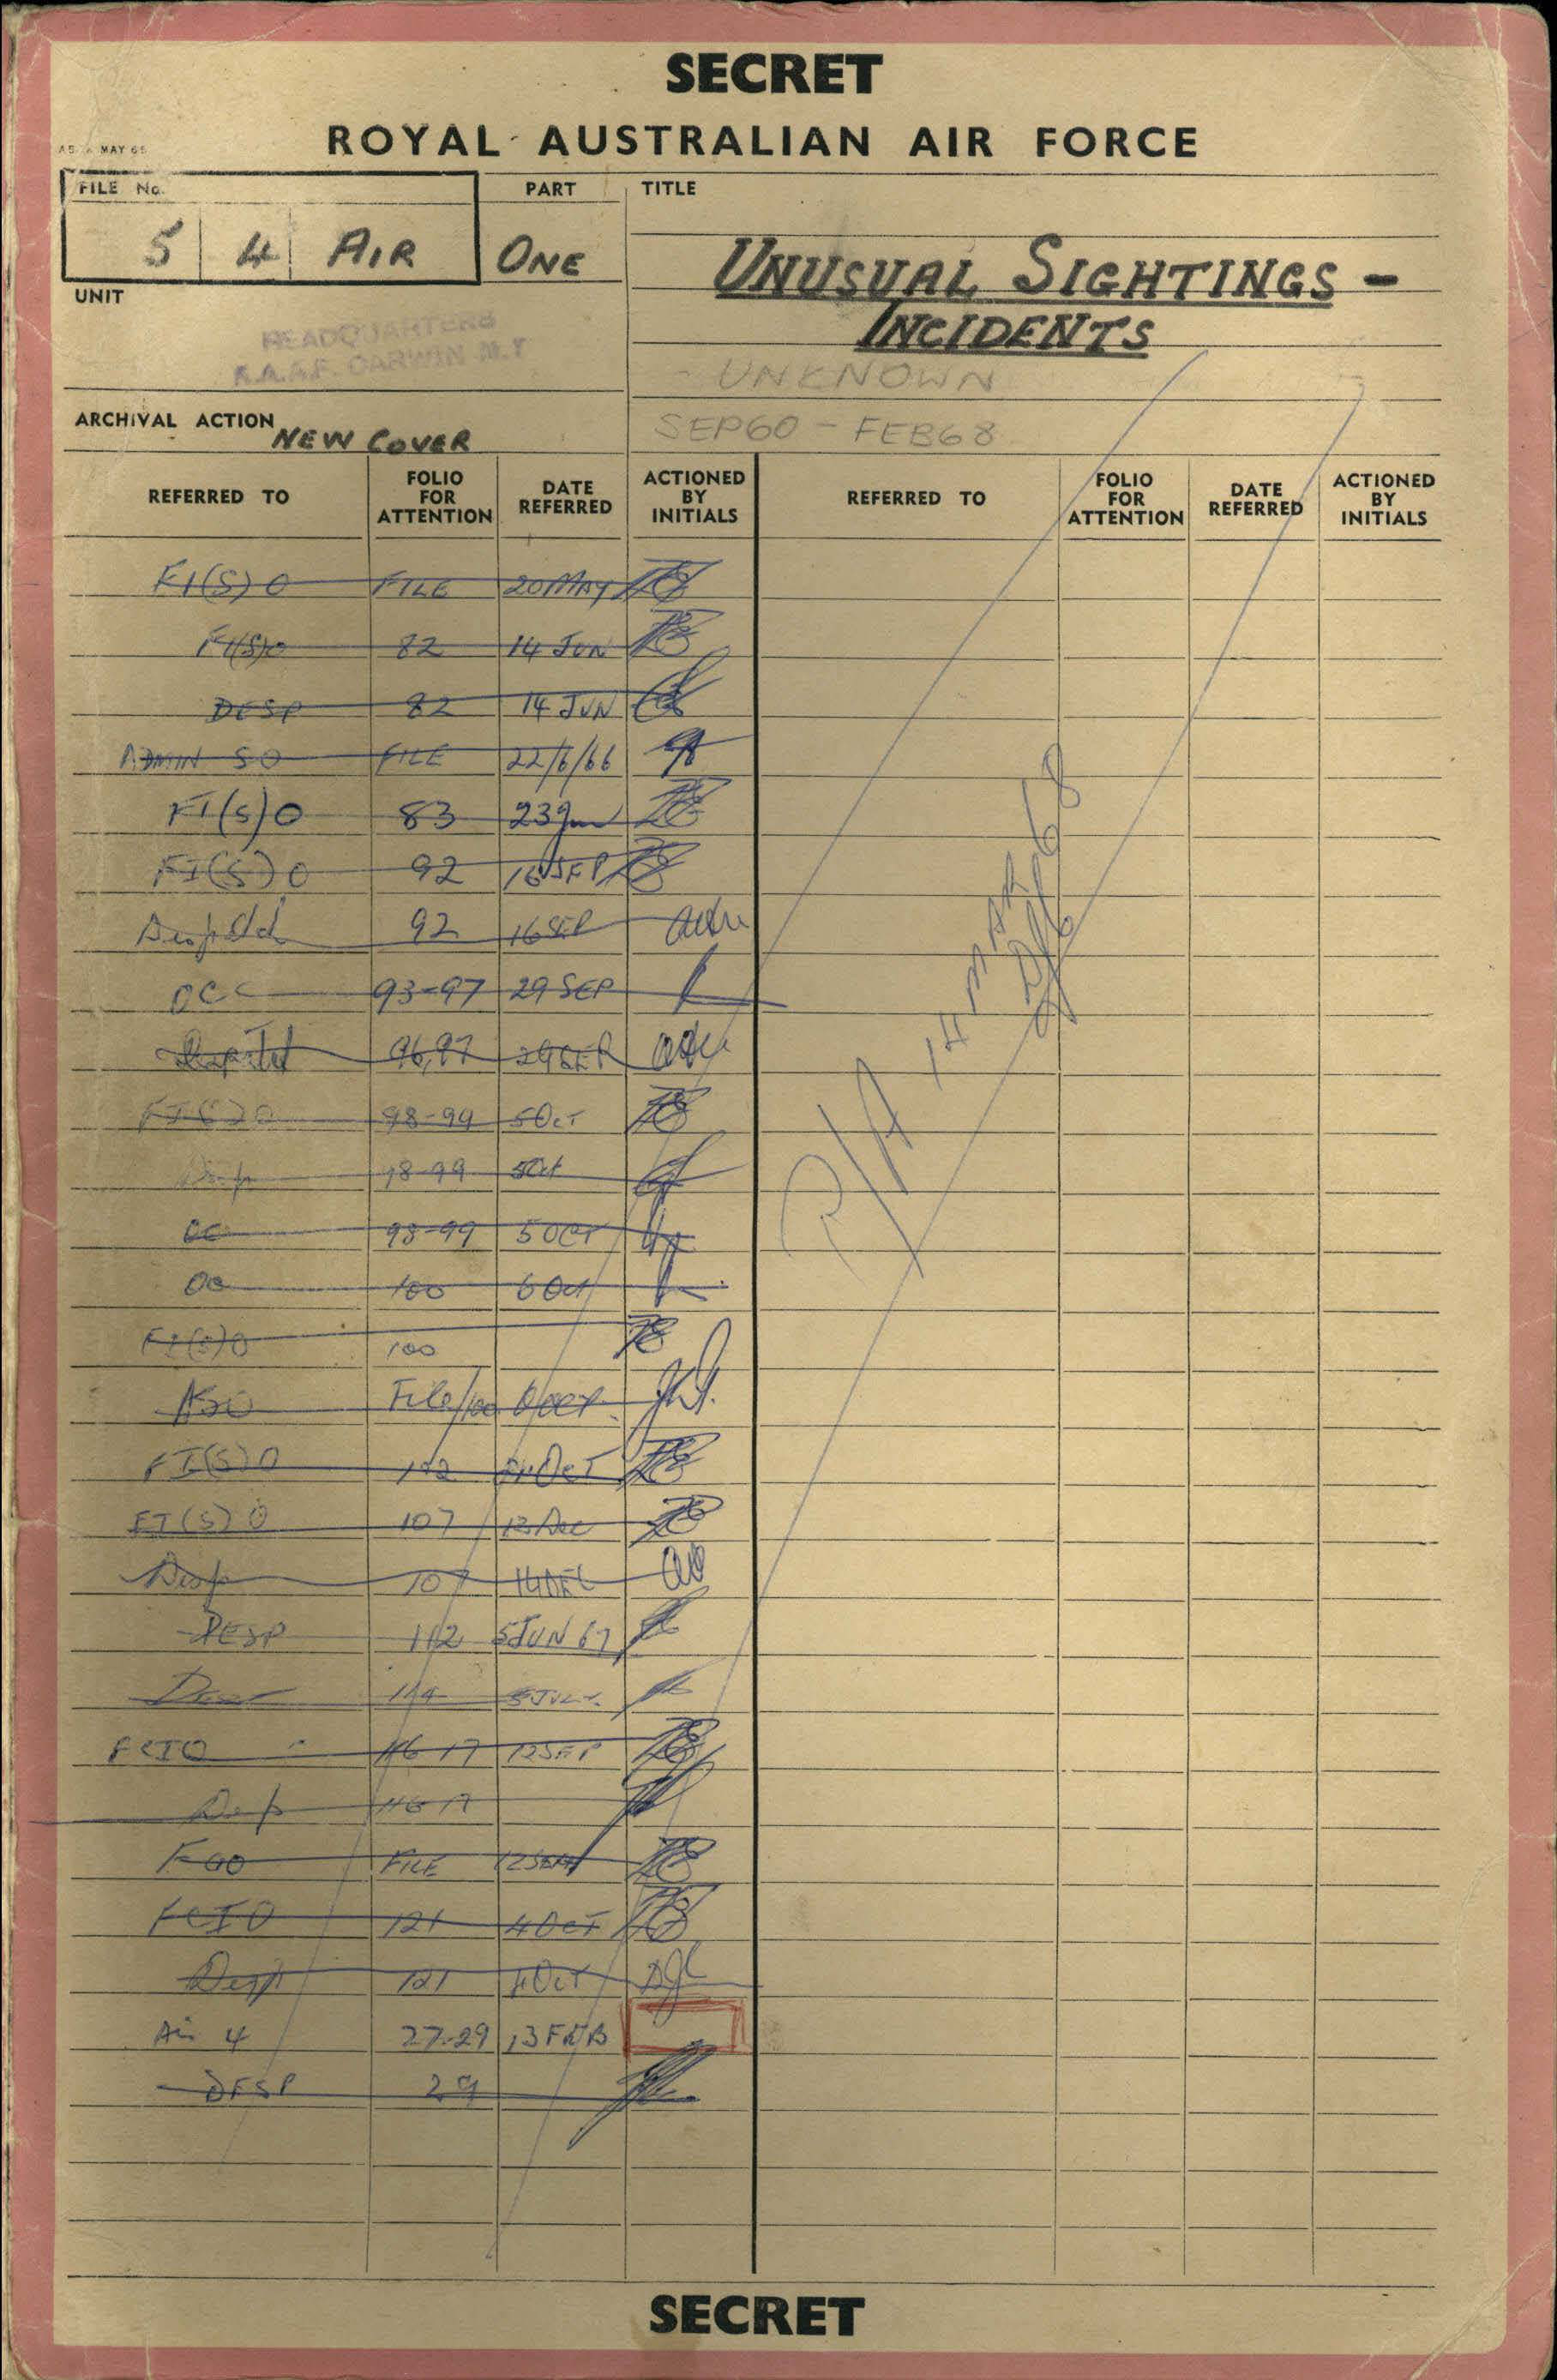 SECRET
ROYAL AUSTRALIAN AIR FORCE
MAY 65
FILE No. PART TITLE
5 | 4 | AIR ONE UNUSUAL SIGHTINGS -
INCIDENTS
UNIT
HEADQUARTERS
R.A.A.F. DARWIN N.T
- UNKNOWN
SEP60 - FEB68
ARCHIVAL ACTION NEW COVER
REFERRED TO FOLIO FOR ATTENTION DATE REFERRED ACTIONED BY INITIALS REFERRED TO FOLIO FOR ATTENTION DATE REFERRED ACTIONED BY INITIALS
FI(S)O FILE 20 MAY
FI(S)O 82 14 JUN
DESP 82 14 JUN
ADMIN SO FILE 22/6/66
FI(S)O 83 23 Jun
FI(S)O 92 16 SEP
92 16 SEP
OC 93-97 29 SEP
96,97 29 SEP
FI(S)O 98-99 5 Oct
Desp 98-99 5 Oct
OC 98-99 5 OCT
OC 100 6 Oct
FI(S)O 100
ASO File/100
FI(S)O 102 OCT
FI(S)O 107 13 Dec
Desp 107 14 DEC
DESP 112 5 JUN 67
114 5 JULY
FCIO 116 17 12 SEP
Desp 116 17
FILE 12 SEP
FCIO 121 4 OCT
Desp 121 4 Oct
Air 4 27-29 13 FEB
DESP 29
P/A 14 MAR 68
SECRET